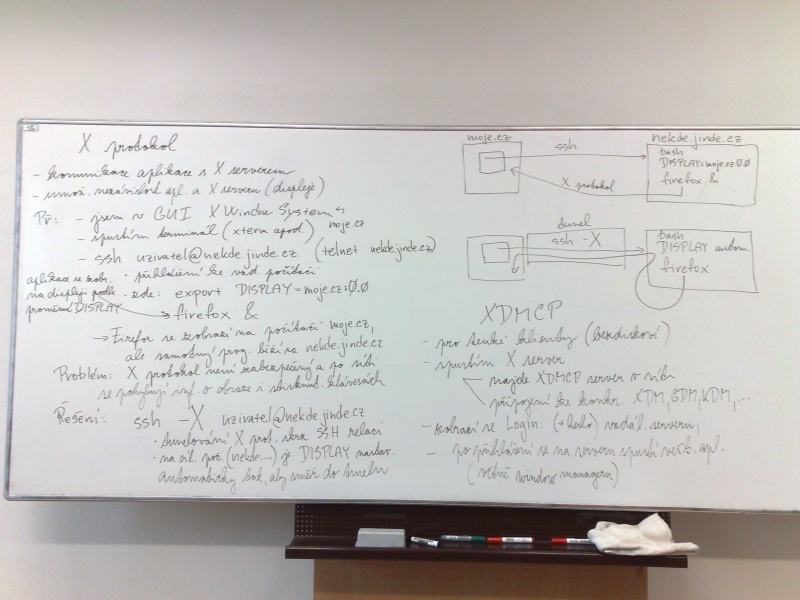 X protokol
- komunikace aplikace s X serverem
- umož. nezávislost apl. a X serveru (displeje)
Př: - jsem v GUI X Window System
moje.cz
- spustím terminál (xterm apod.)
- ssh uzivatel@nekde.jinde.cz (telnet nekde.jinde.cz)
· přihlášení ke vzd. počítači
aplikace se zobr.
na displeji podle
proměnné DISPLAY
· zde: export DISPLAY=moje.cz:0.0
firefox &
→ Firefox se zobrazí na počítači moje.cz,
ale samotný prog. běží na nekde.jinde.cz
Problém: X protokol není zabezpečený a po síti
se pohybují inf. o obraze i stisknut. klávesách
Řešení: ssh -X uzivatel@nekde.jinde.cz
· tunelování X prot. skrz SSH relaci
· na cíl. poč. (nekde....) je DISPLAY nastav.
automaticky tak, aby směř. do tunelu
moje.cz
ssh
X protokol
nekde.jinde.cz
bash
DISPLAY=moje.cz:0.0
firefox &
tunel
ssh -X
bash
DISPLAY autom.
firefox
XDMCP
- pro tenké klienty (bezdiskové)
- spustím X server
najde XDMCP server v síti
připojení ke konkr. XDM, GDM, KDM, ...
- zobrazí se Login: (+heslo) vzdál. serveru,
- po přihlášení se na serveru spustí vešk. apl.
(včetně window manageru)